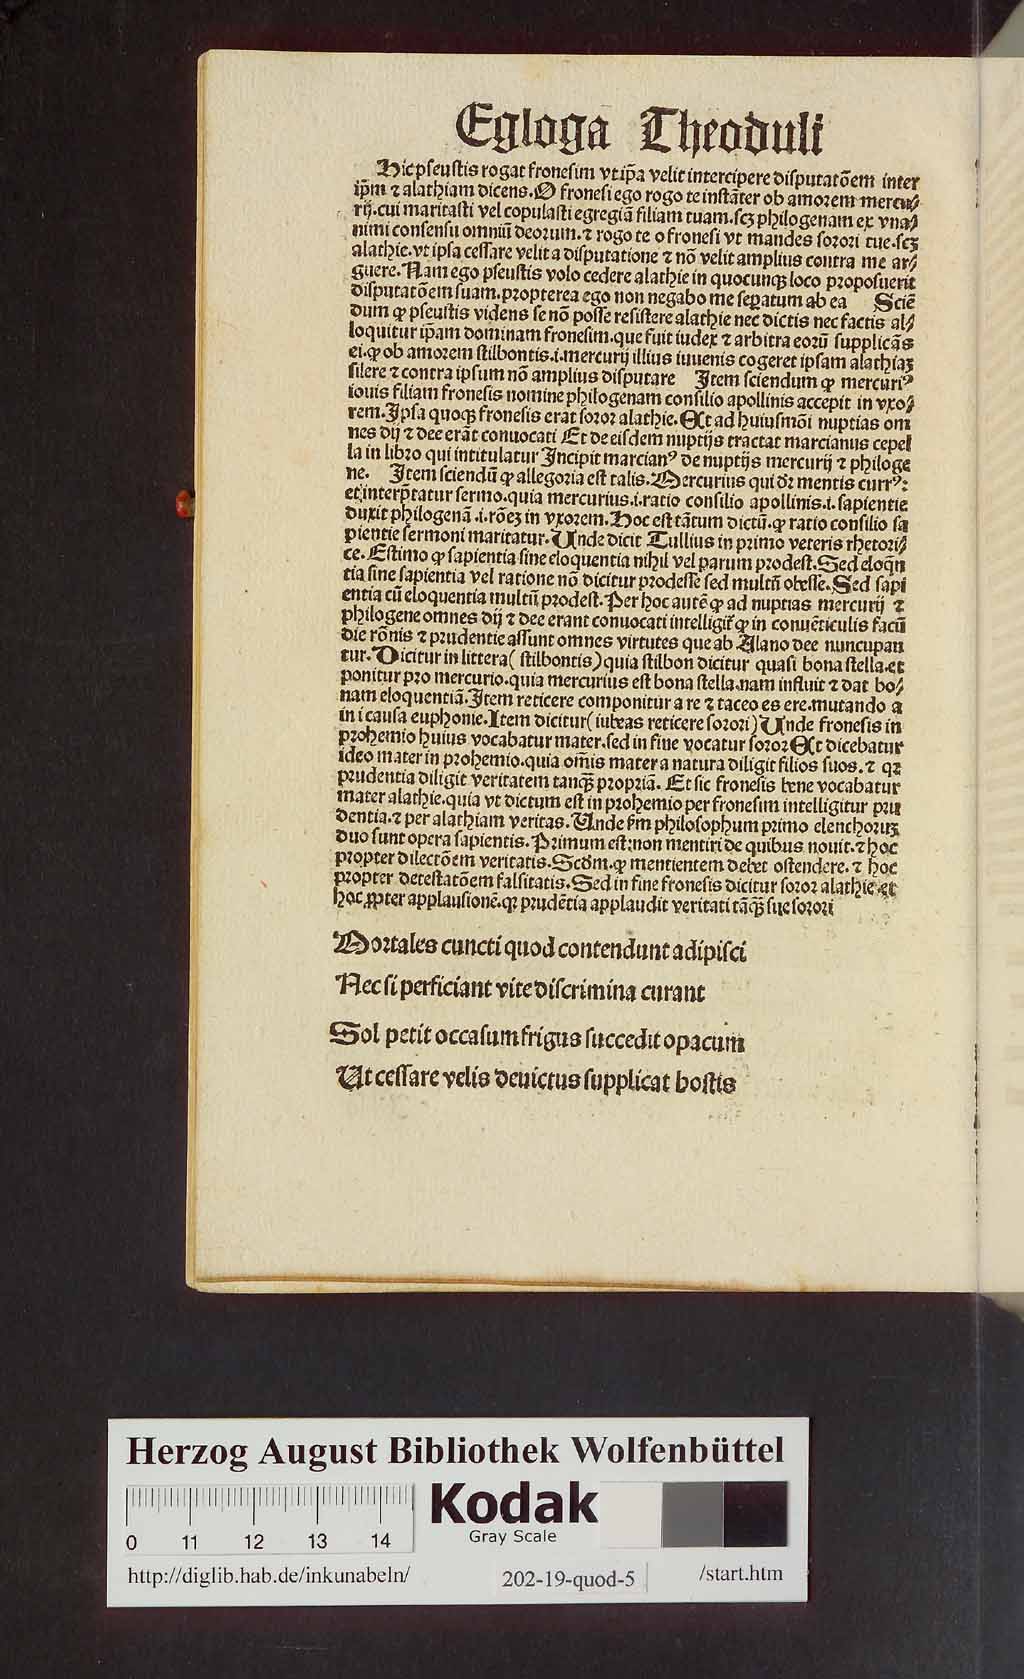 Egloga Theoduli
Hic pseustis rogat fronesim vt ip̄a velit intercipere disputatōem inter
ip̄m ⁊ alathiam dicens. O fronesi ego rogo te instāter ob amorem mercu⸗
rij. cui maritasti vel copulasti egregiā filiam tuam. scȝ philogenam ex vna⸗
nimi consensu omniū deorum. ⁊ rogo te o fronesi vt mandes sorori tue. scȝ
alathie. vt ipsa cessare velit a disputatione ⁊ nō velit amplius contra me ar⸗
guere. Nam ego pseustis volo cedere alathie in quocunqȝ loco proposuerit
disputatōem suam. propterea ego non negabo me sep̄atum ab ea Sciē
dum ꝙ pseustis videns se nō posse resistere alathie nec dictis nec factis al⸗
loquitur ip̄am dominam fronesim. que fuit iudex ⁊ arbitra eorū supplicās
ei. ꝙ ob amorem stilbontis .i. mercurij illius iuuenis cogeret ipsam alathiaȝ
silere ⁊ contra ipsum nō amplius disputare Item sciendum ꝙ mercuriꝰ
iouis filiam fronesis nomine philogenam consilio apollinis accepit in vxo⸗
rem. Ipsa quoqȝ fronesis erat soror alathie. Et ad huiusmōi nuptias om
nes dij ⁊ dee erāt conuocati Et de eisdem nuptijs tractat marcianus cepel
la in libro qui intitulatur Incipit marcianꝰ de nuptijs mercurij ⁊ philoge
ne. Item sciendū ꝙ allegoria est talis. Mercurius qui dr̄ mentis currꝰ:
et interp̄tatur sermo. quia mercurius .i. ratio consilio apollinis .i. sapientie
duxit philogenā .i. rōeȝ in vxorem. Hoc est tātum dictū. ꝙ ratio consilio sa
pientie sermoni maritatur. Unde dicit Tullius in primo veteris rhetori⸗
ce. Estimo ꝙ sapientia sine eloquentia nihil vel parum prodest. Sed eloqn̄
tia sine sapientia vel ratione nō dicitur prodesse sed multū obesse. Sed sapi
entia cū eloquentia multū prodest. Per hoc autē ꝙ ad nuptias mercurij ⁊
philogene omnes dij ⁊ dee erant conuocati intelligit̄ ꝙ in conuēticulis facū
die rōnis ⁊ prudentie assunt omnes virtutes que ab Alano dee nuncupan
tur. Dicitur in littera (stilbontis) quia stilbon dicitur quasi bona stella. et
ponitur pro mercurio. quia mercurius est bona stella. nam influit ⁊ dat bo⸗
nam eloquentiā. Item reticere componitur a re ⁊ taceo es ere. mutando a
in i causa euphonie. Item dicitur (iubeas reticere sorori) Unde fronesis in
prohemio huius vocabatur mater. sed in fine vocatur soror Et dicebatur
ideo mater in prohemio. quia om̄is mater a natura diligit filios suos. ⁊ qꝛ
prudentia diligit veritatem tanqȝ propriā. Et sic fronesis bene vocabatur
mater alathie. quia vt dictum est in prohemio per fronesim intelligitur pru
dentia. ⁊ per alathiam veritas. Unde s̄m philosophum primo elenchoruȝ
duo sunt opera sapientis. Primum est: non mentiri de quibus nouit. ⁊ hoc
propter dilectōem veritatis. Scd̄m. ꝙ mentientem debet ostendere. ⁊ hoc
propter detestatōem falsitatis. Sed in fine fronesis dicitur soror alathie. et
hoc ꝓpter applausionē. qꝛ prudētia applaudit veritati tāqȝ sue sorori
Mortales cuncti quod contendunt adipisci
Nec si perficiant vite discrimina curant
Sol petit occasum frigus succedit opacum
Ut cessare velis deuictus supplicat hostis
Herzog August Bibliothek Wolfenbüttel
Kodak
Gray Scale
0 11 12 13 14
http://diglib.hab.de/inkunabeln/ 202-19-quod-5 /start.htm